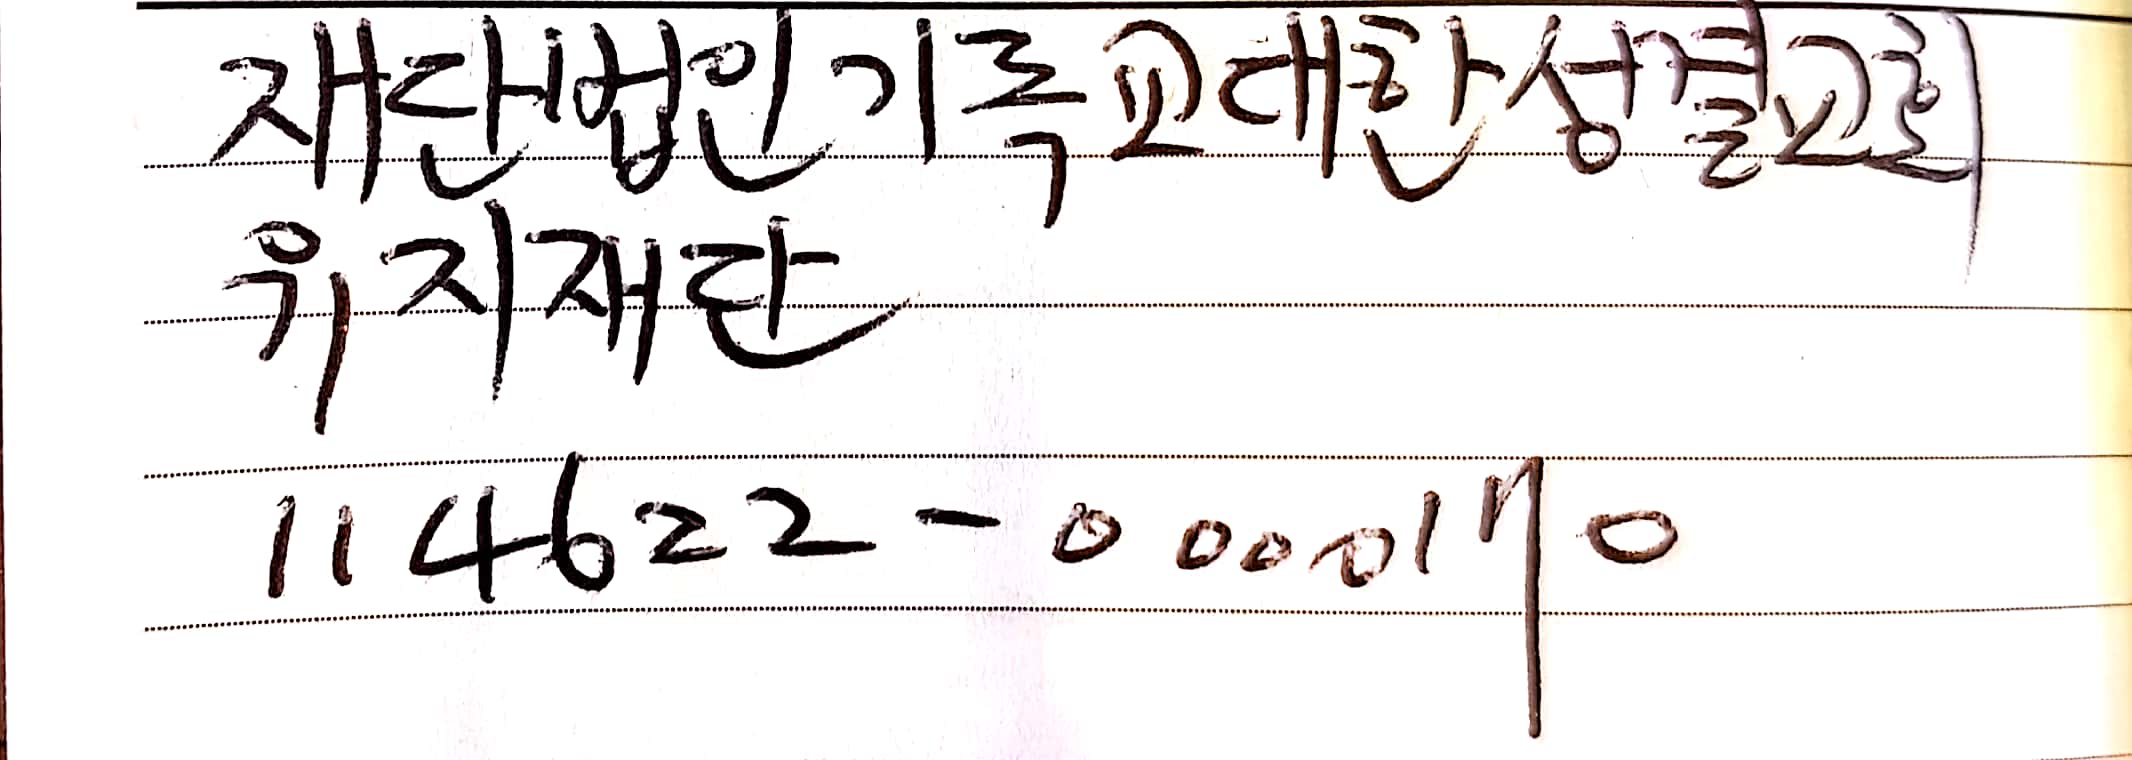 재단법인기독교대한성결교회
유지재단
114622-0000170